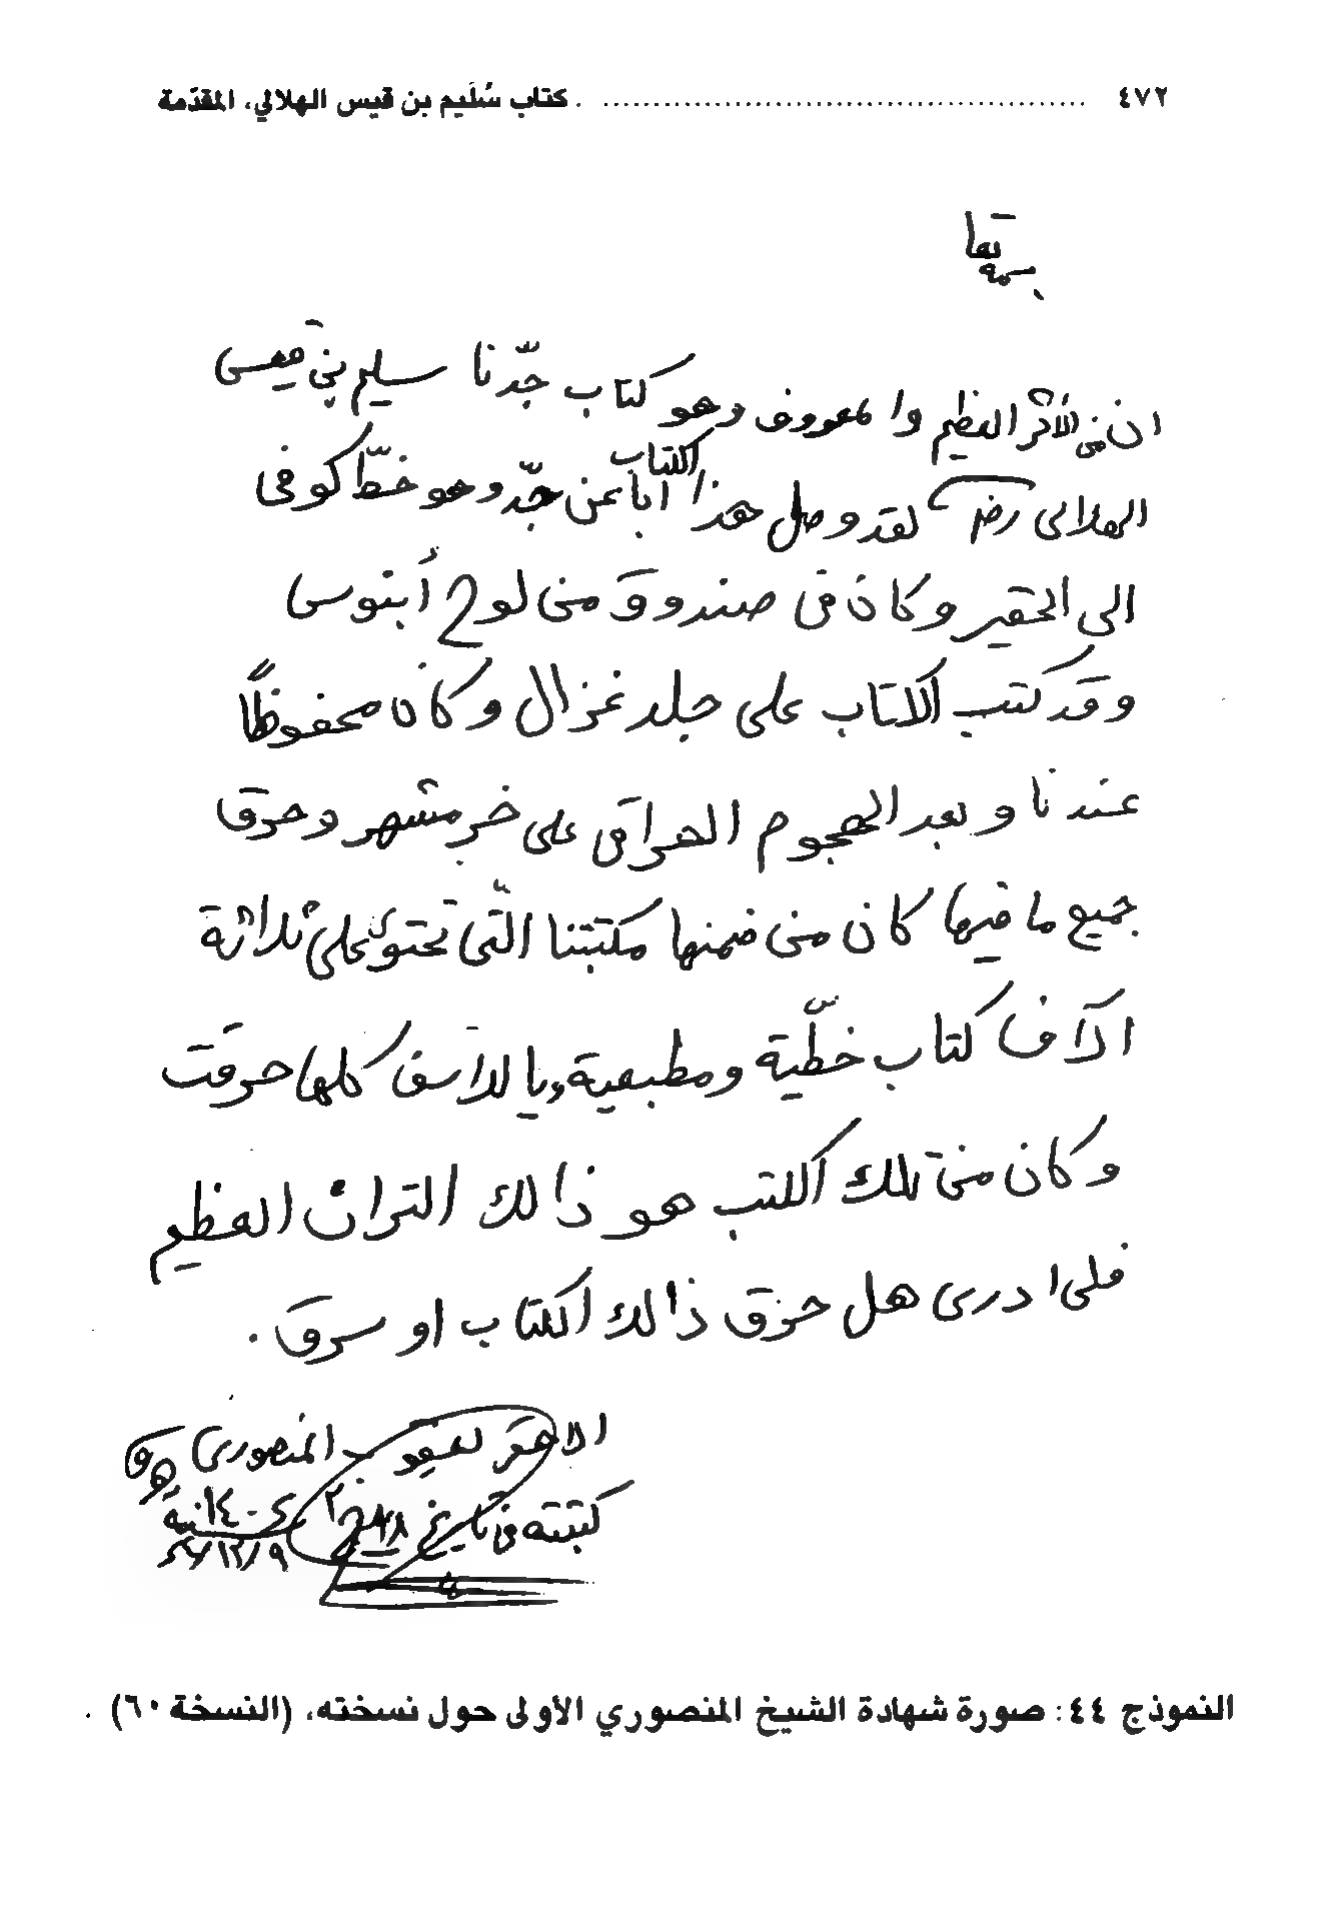 ٤٧٢ ........ كتاب سُلَيم بن قيس الهلالي، المقدّمة
بسمه تعا
ان من الأثر العظيم والمعروف وهو كتاب جدّنا سليم بن قيس
الهلالى رض لقد وصل هذا الكتاب اباً عن جدّ وهو خطّ كوفى
الى الحقير وكان فى صندوق من لوح أبنوس
وقد كتب الكتاب على جلد غزال وكان محفوظاً
عندنا وبعد الهجوم العراقى على خرمشهر وحرق
جميع ما فيها كان من ضمنها مكتبتنا الّتى تحتوى على ثلاثة
الآف كتاب خطّية ومطبعية ويا للأسف كلها حرقت
وكان من تلك الكتب هو ذالك التراث العظيم
فلا ادرى هل حرق ذالك الكتاب او سرق .
الاحقر يعقوب المنصورى
كتبته فى تاريخ
النموذج ٤٤: صورة شهادة الشيخ المنصوري الأولى حول نسخته، (النسخة ٦٠) .